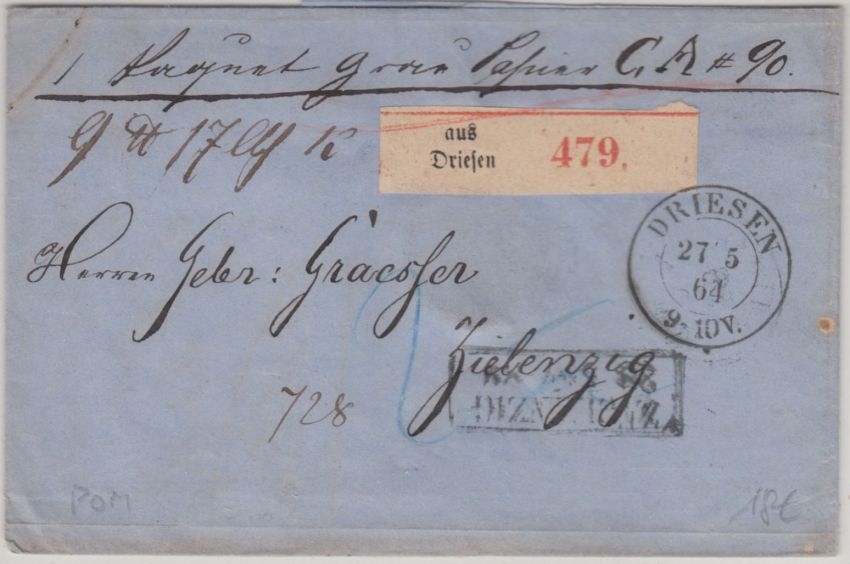 1 Paquet grau Papier C. R # 90.
9 ℔ 17 Lth
aus
Driesen 479.
DRIESEN
27 5
64
9-10V.
Herren Gebr: Graesser
Zielenzig
ZIELENZIG
728
POM
18€